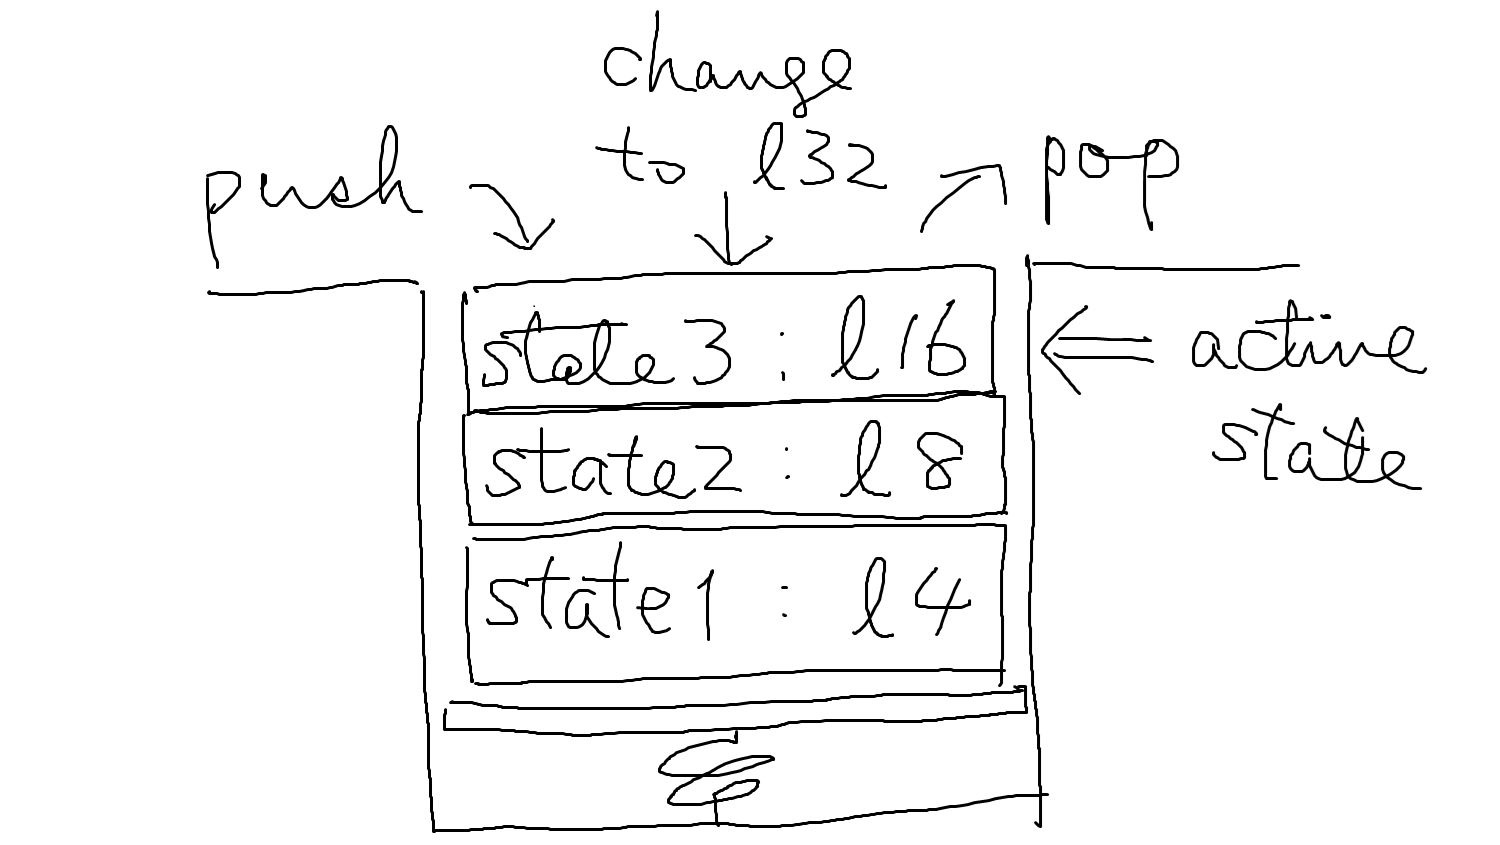 change
to l32
push
pop
state3 : l16
active
state
state2 : l8
state1 : l4